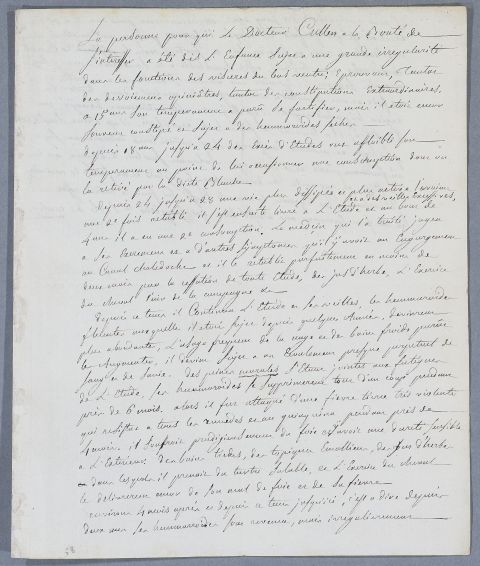 La personne pour qui Le Docteur Cullen a la Bonté de
s'interesser a été dès L'Enfance sujet a une grande irregularité
dans les fonctions des visceres du bas ventre; Eprouvant, tantot
des devoiements opiniâtres, tantot des constipations Extraordinaires.
a 15 ans son temperament a paru se fortifier, mais il etoit encor
souvent constipé et sujet a des hemmoroides seches
depuis 18 ans jusqu'a 24 des Excès d'Etudes ont affoibli son
temperament au point de lui occasionner une consomption dont on
la retiré par la diete Blanche
depuis 24 jusqu'a 28 une vie plus dissipée et plus active l'avoient
une 2e fois retabli il s'est ensuite livré a L'Etude et a des veilles Excessives,
et au bout de
4 ans il a eu une 2e consomption. Le medecin qui l'a traité jugea
a ses et a d'autres symptomes qu'il y avoit un Engorgement
au Canal Choledoche et il le retablit parfaitement en moins de
mois par la cessation de toute Etude, des jus d'herbe, L'Exercice
du cheval L'air de la campagne &c
depuis ce tems il Continua L'Etude et les veilles, les hemmoroides
fluentes auxquelles il etoit sujet depuis quelques Années, devinrent
plus abondantes, L'usage frequent de la et de bains froids parut
les Augmenter, il devint sujet a un Ecoulement presque perpetuel de
sang et de sanie. des peines morales s'Etant jointes aux fatigues
de L'Etude, ses hemmoroides se supprimerent tout d'un coup pendant
près de 6 mois. alors il fut attaqué d'une fievre tierce très violente
qui resista a tous les remedes et au quinquina pendant près de
4 mois. il souffroit prodigieusement du foie et avoit une dureté sensible
a L'Exterieur. des bains tiedes, des topiques Emollients, des jus d'herbe
dans lesquels il prenoit du tartre soluble, et L'Exercice du cheval
le delivrerent encor de son mal de foie et de sa fievre
environ 4 mois après et depuis ce tems jusqu'ici, c'est a dire depuis
deux ans ses hemmoroides sont revenues, mais irregulierement
58